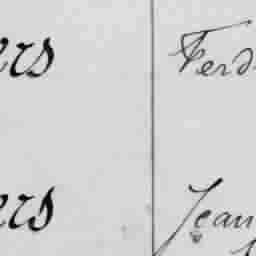 ers Ferd
ers Jean